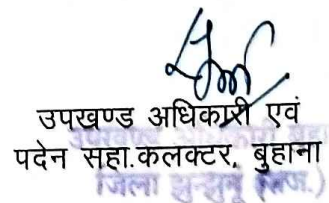 उपखण्ड अधिकारी एवं
पदेन सहा.कलक्टर, बुहाना
जिला झुन्झुनू (राज.)